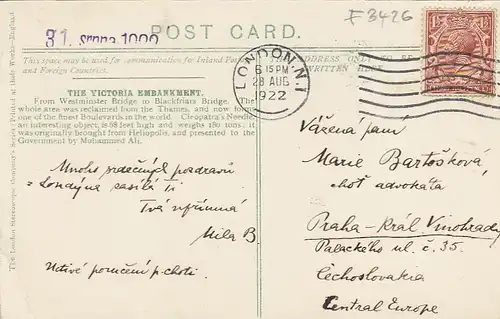 F 3426
31. srpna 1922
POST CARD.
This space may be used for communication for Inland
and Foreign Countries.
THE ADDRESS ONLY TO BE
WRITTEN HERE
LONDON. N.1
6 15 PM
28 AUG
1922
THE VICTORIA EMBANKMENT.
From Westminster Bridge to Blackfriars Bridge. The
whole area was reclaimed from the Thames, and now forms
one of the finest Boulevards in the world. Cleopatra's Needle,
an interesting object, is 68 feet high and weighs 180 tons. It
was originally brought from Heliopolis, and presented to the
Government by Mohammed Ali.
Mnoho srdečných pozdravů
z Londýna zasílá Ti
Tvá upřímná
Mila B.
Uctivé poručení p. choti.
Vážená paní
Marie Bartošková,
choť advokáta
Praha-Král. Vinohrady
Palackého ul. č. 35.
Čechoslovakia
Central Europe